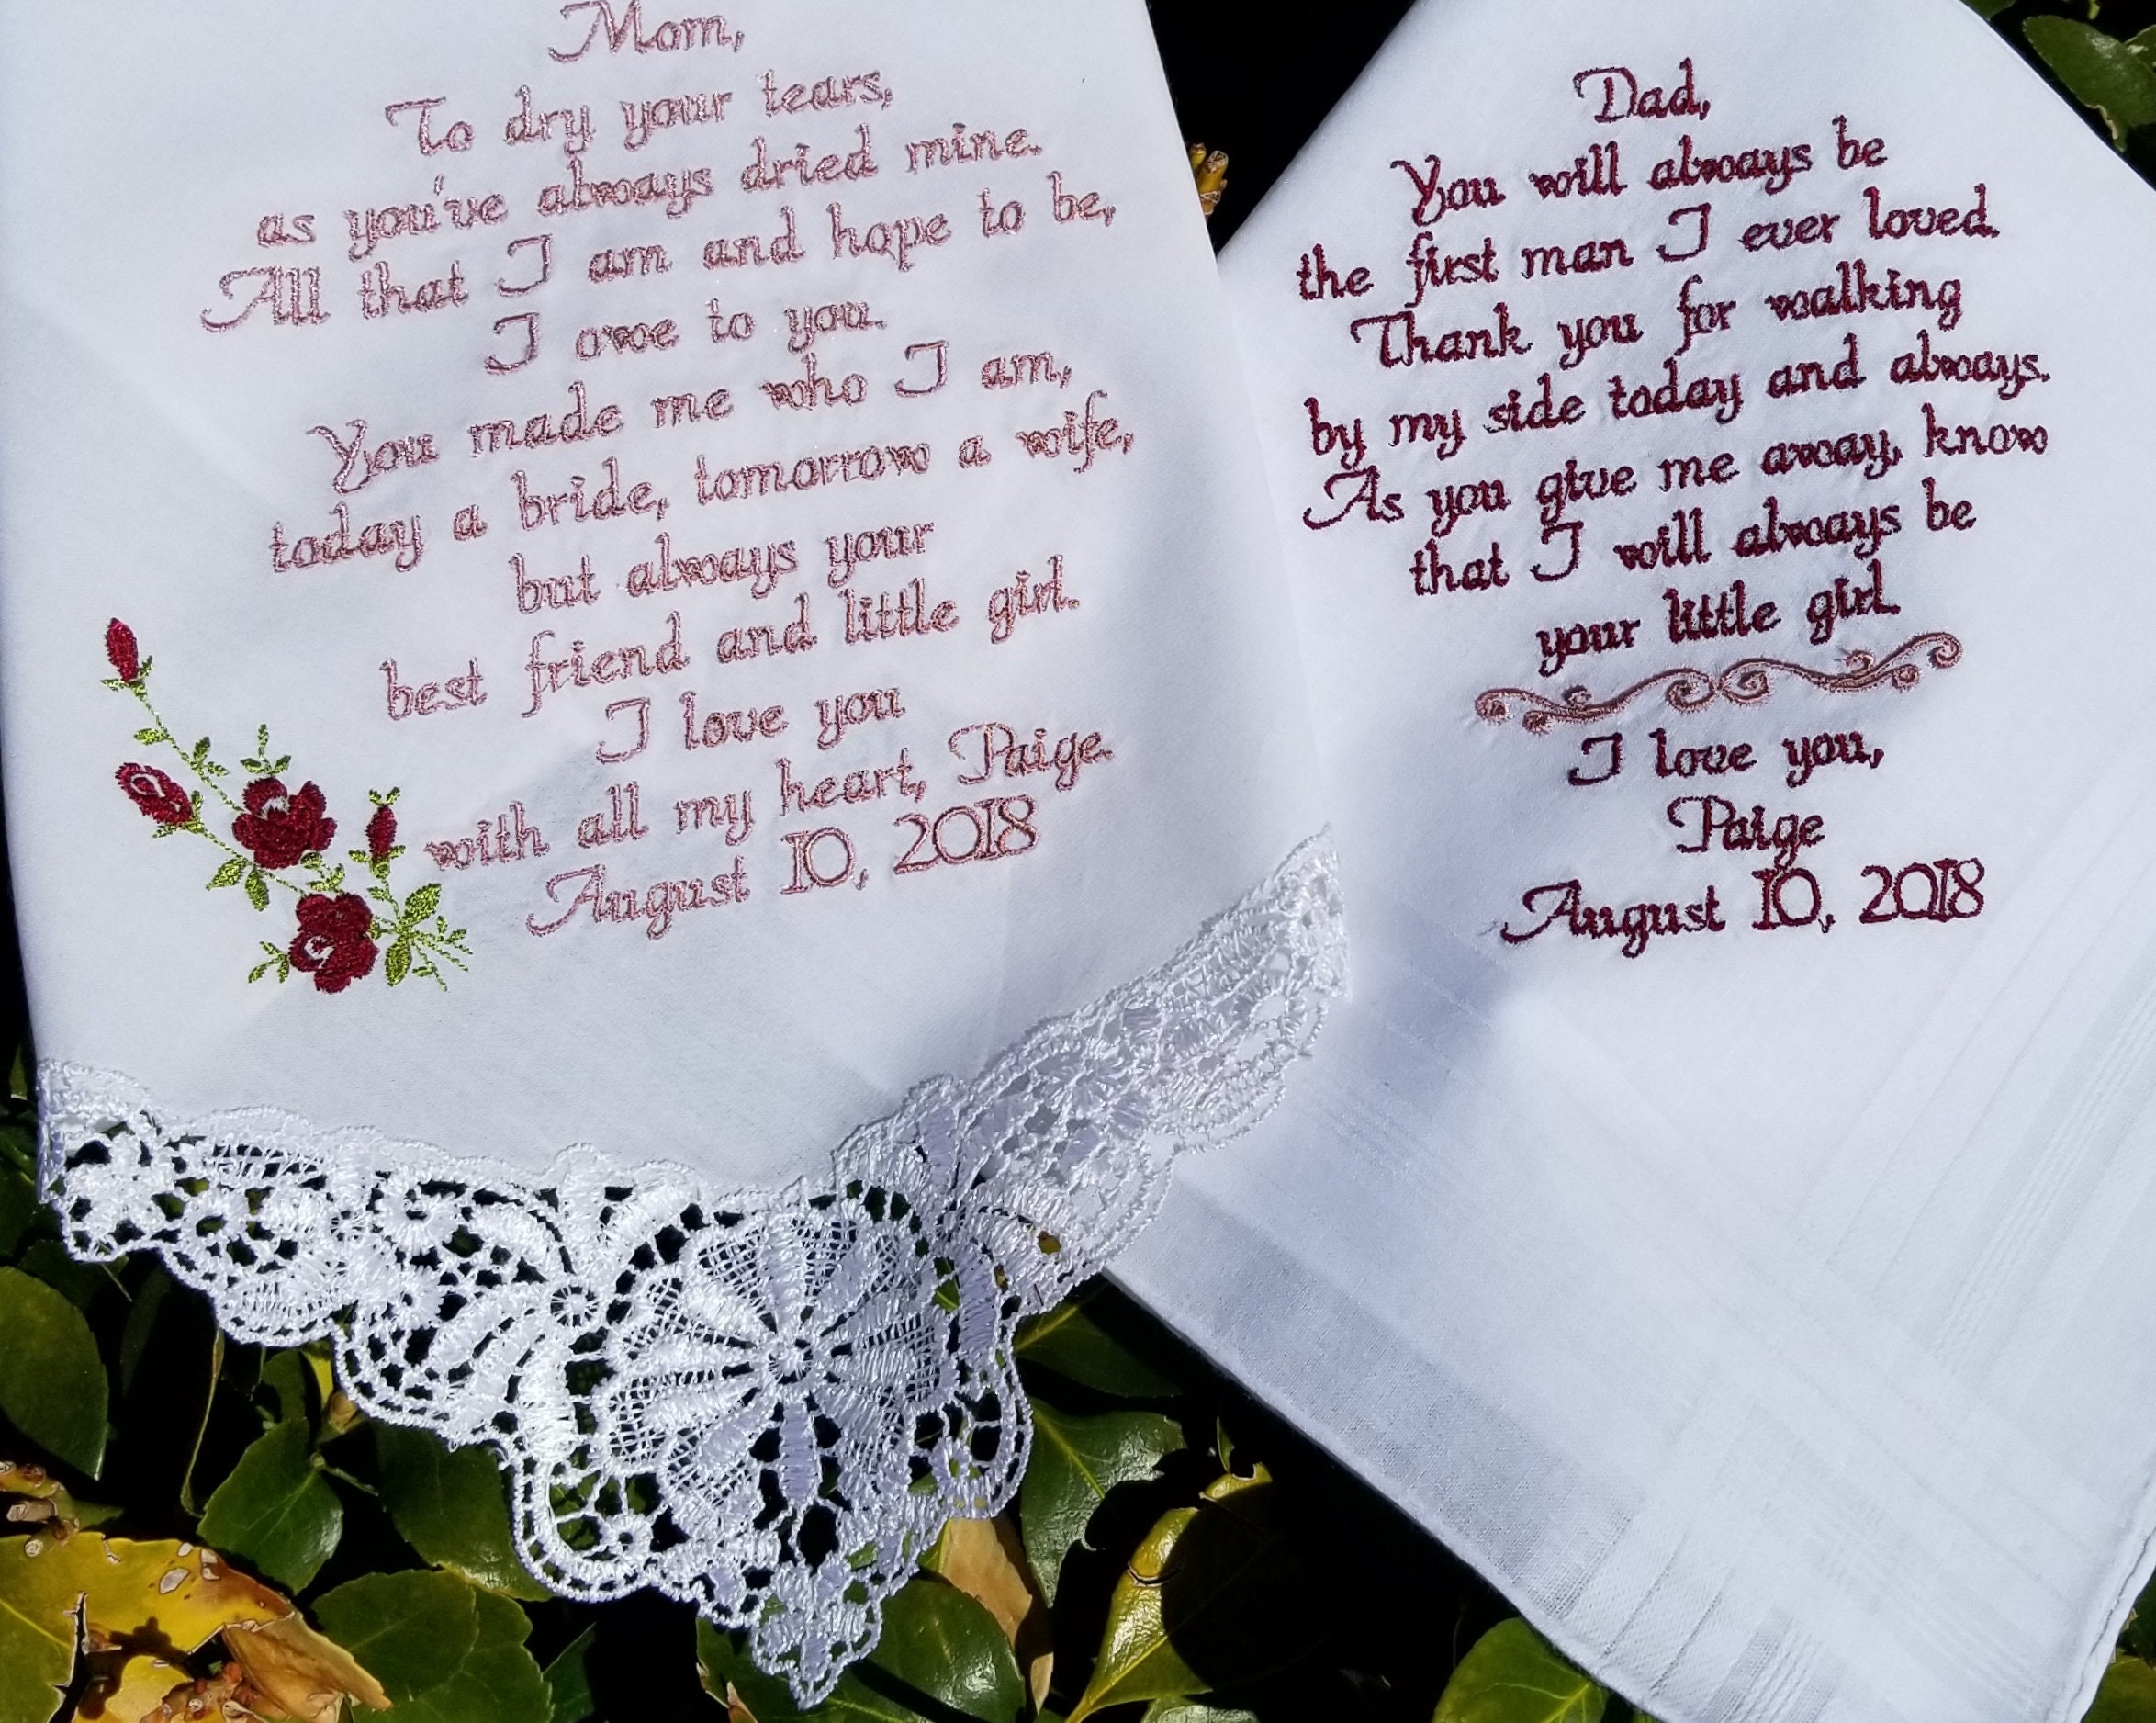 Mom,
To dry your tears,
as you've always dried mine.
All that I am and hope to be,
I owe to you.
You made me who I am,
today a bride, tomorrow a wife,
but always your
best friend and little girl.
I love you
with all my heart, Paige.
August 10, 2018
Dad,
You will always be
the first man I ever loved.
Thank you for walking
by my side today and always.
As you give me away, know
that I will always be
your little girl.
I love you,
Paige
August 10, 2018